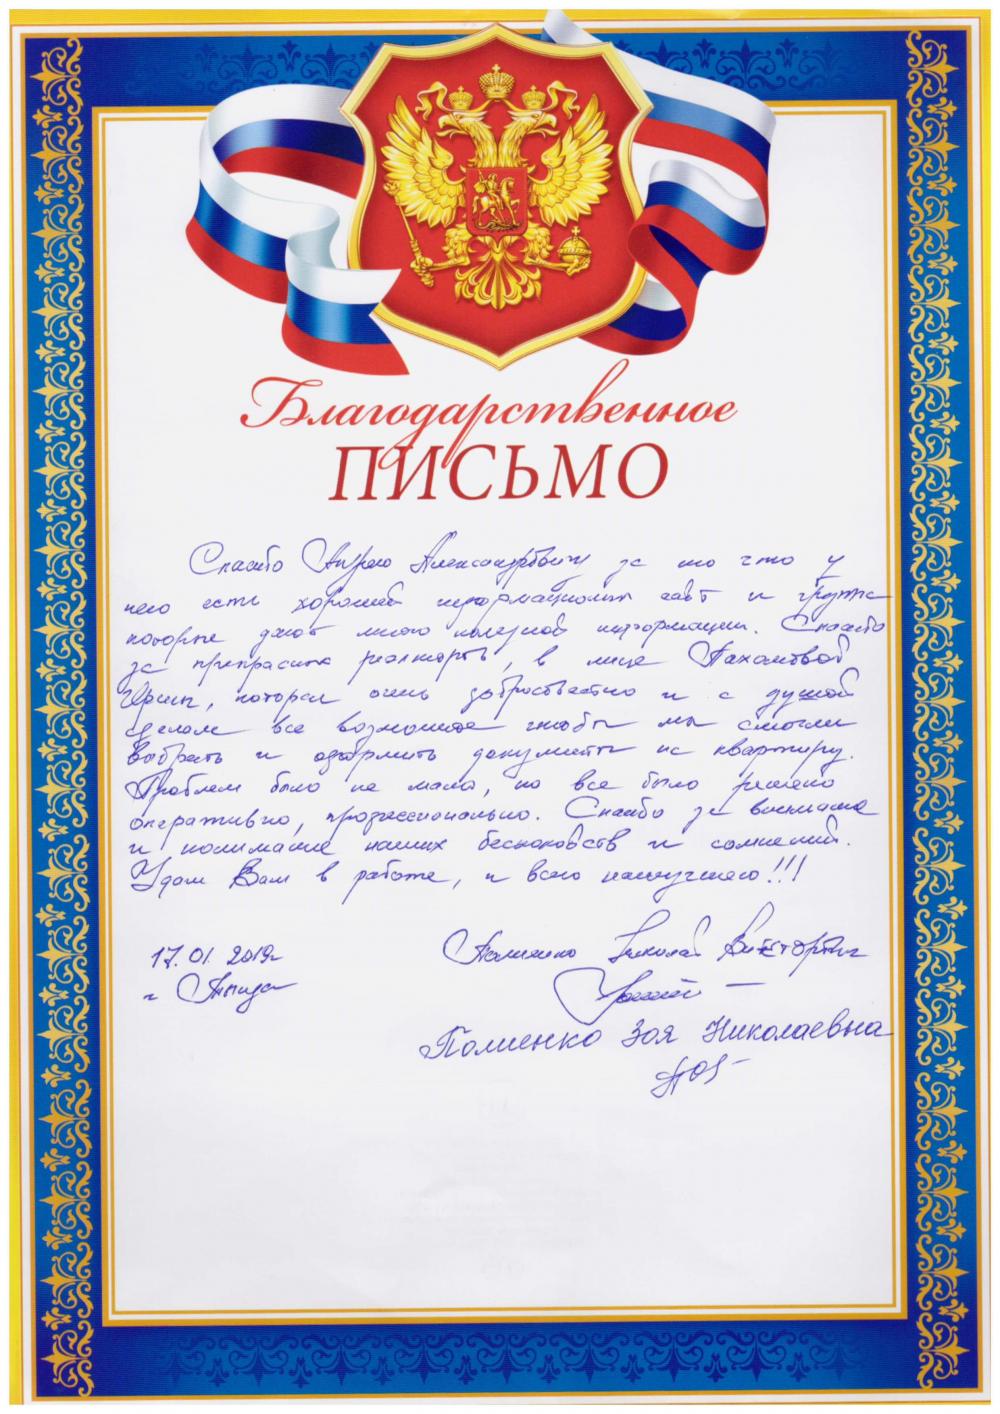 Благодарственное
ПИСЬМО
Спасибо Андрею Александровичу за то что у
него есть хороший информационный сайт и группа
которые дают много полезной информации. Спасибо
за прекрасных риэлторов, в лице Пахомовой
Ирины, которая очень добросовестно и с душой
делала все возможное чтобы мы смогли
выбрать и оформить документы на квартиру.
Проблем было не мало, но все было решено
оперативно, профессионально. Спасибо за внимание
и понимание наших беспокойств и сомнений.
Удачи Вам в работе, и всего наилучшего!!!
17.01.2019г
г. Тында
Полиенко Николай Викторович
Полиенко Зоя Николаевна